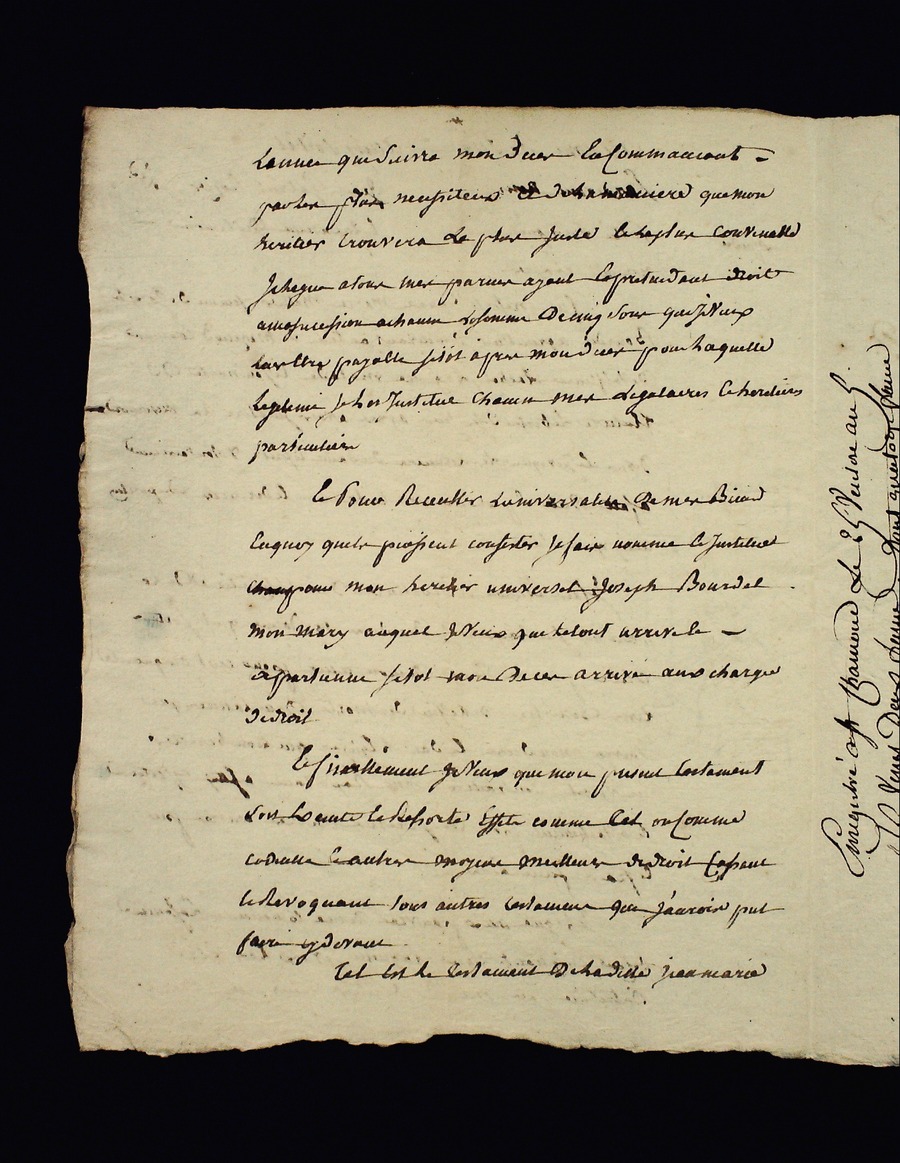 Lannee qui suivra mon deces En Commancent
par les plus necessiteux et de la maniere que mon
heritier trouvera Le plus juste et le plus convenable
Je legue a tous mes parens ayant Ce pretendant droit
a ma sucession a chacun La somme De cinq sous que je veux
leur Etre payable sitot apres mon deces pour Laquelle
Legitime je Les Institue Chacun mes Legataires et heritiers
particuliers
Et Pour Recueillir Luniversalité De mes Biens
En quoy quels puissent consister je fais nomme et Institue
mon heritier universel Joseph Bourdel
mon mary auquel je veux que le tout arrive et
apartienne sitot mon Deces arrivé aux charges
de droit
Et finallement je veux que mon present testament
soit Execute et Ressorte Effet comme tel ou Comme
codicille et autres moyens meilleurs de droit Cassant
et Revoquant tous autres testamens que j'aurois put
faire cy devant
Tel Est le testament De Ladite jeanmarie
Enregistré a St Chamond Le 25 Ventose an 5